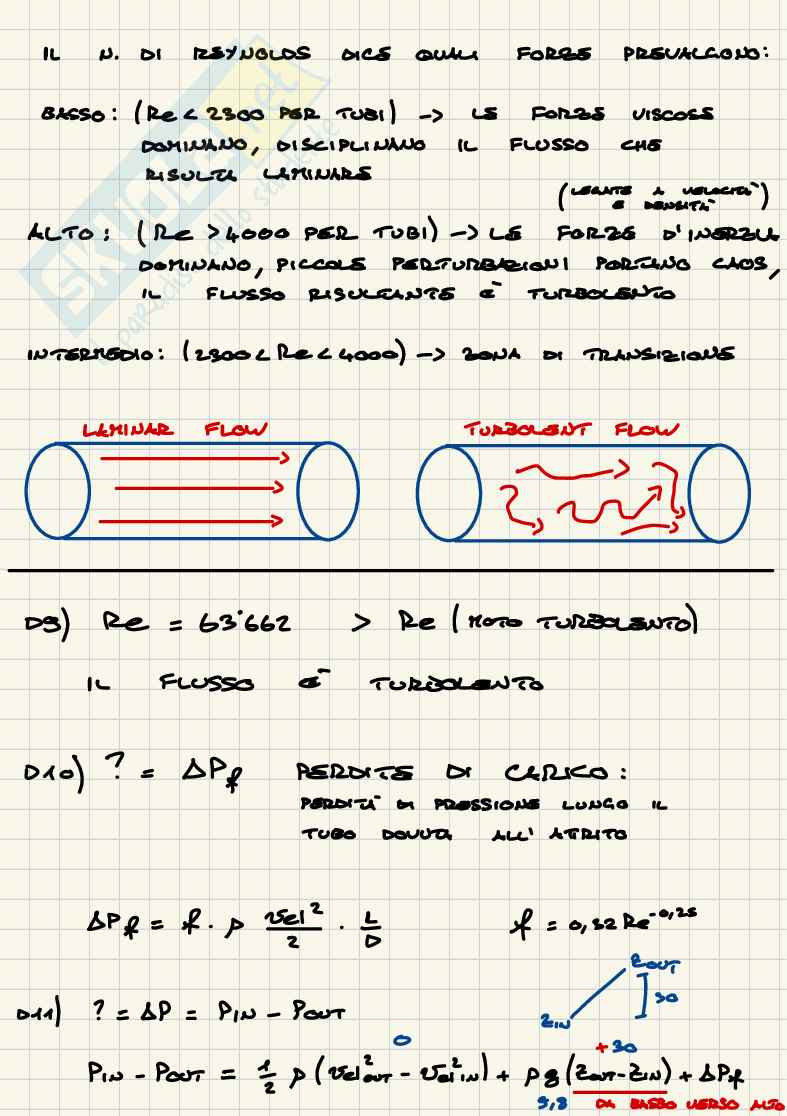 IL N. DI REYNOLDS DICE QUALI FORZE PREVALGONO:
BASSO: (Re < 2300 PER TUBI) -> LE FORZE VISCOSE
DOMINANO, DISCIPLINANO IL FLUSSO CHE
RISULTA LAMINARE
(LEGATE A VELOCITÀ
E DENSITÀ)
ALTO: (Re > 4000 PER TUBI) -> LE FORZE D'INERZIA
DOMINANO, PICCOLE PERTURBAZIONI PORTANO CAOS,
IL FLUSSO RISULTANTE È TURBOLENTO
INTERMEDIO: (2300 < Re < 4000) -> ZONA DI TRANSIZIONE
LAMINAR FLOW
TURBOLENT FLOW
D9) Re = 63'662 > Re (MOTO TURBOLENTO)
IL FLUSSO È TURBOLENTO
D10) ? = ΔPf PERDITE DI CARICO:
PERDITÀ DI PRESSIONE LUNGO IL
TUBO DOVUTA ALL' ATRITO
ΔPf = f · ρ vel²/2 · L/D f = 0,32 Re^-0,25
ZOUT
30
ZIN
D11) ? = ΔP = PIN - POUT
0
+30
PIN - POUT = 1/2 ρ (vel²OUT - vel²IN) + ρg (ZOUT - ZIN) + ΔPf
9,8 DA BASSO VERSO ALTO
SKUOLA.net
il paradiso dello studente